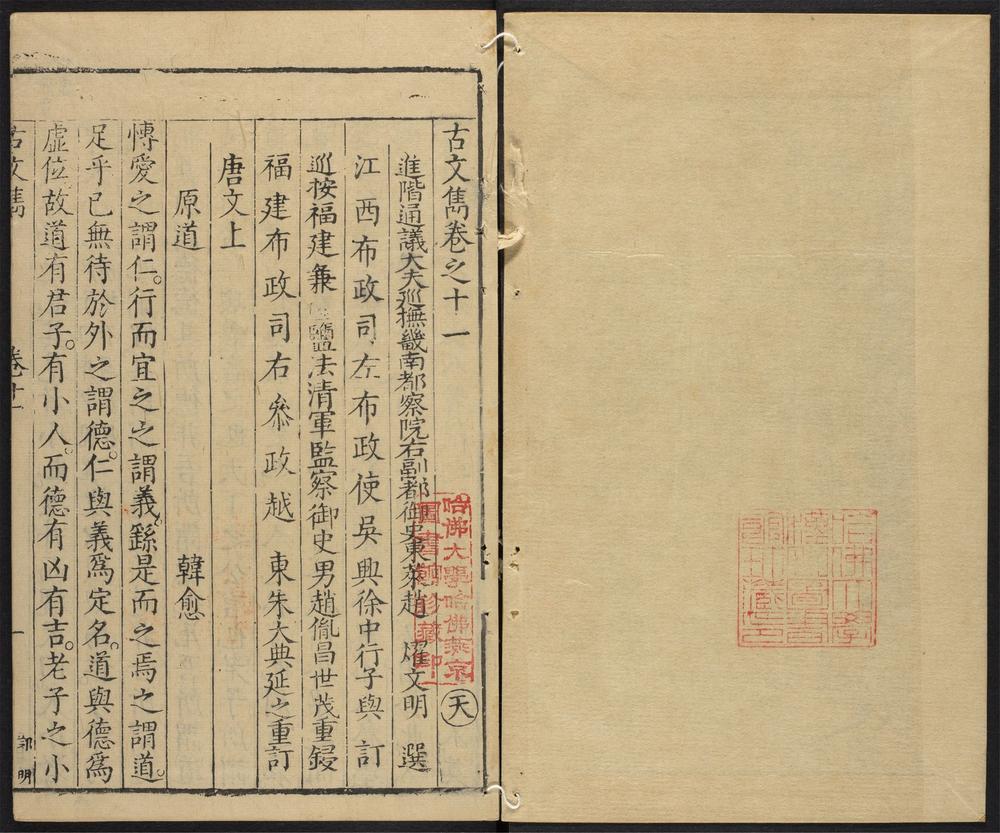 古文雋卷之十一
天
進階通議大夫巡撫畿南都察院右副都御史東萊趙 燿文明 選
江西布政司左布政使吳興徐中行子與 訂
巡按福建兼 鹽法清軍監察御史男趙胤昌世茂重鋟
福建布政司右叅政越 東朱大典延之重訂
唐文上
原道 韓愈
博愛之謂仁。行而宜之之謂義。繇是而之焉之謂道。
足乎已無待於外之謂德。仁與義爲定名。道與德爲
虛位故道有君子。有小人。而德有凶有吉。老子之小
古文雋 卷十一 一
明
哈佛大學哈佛燕京
圖書館珍藏印
哈佛大學
漢和圖書
館珍藏印